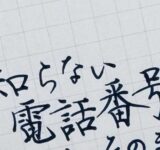 知らない
電話番号